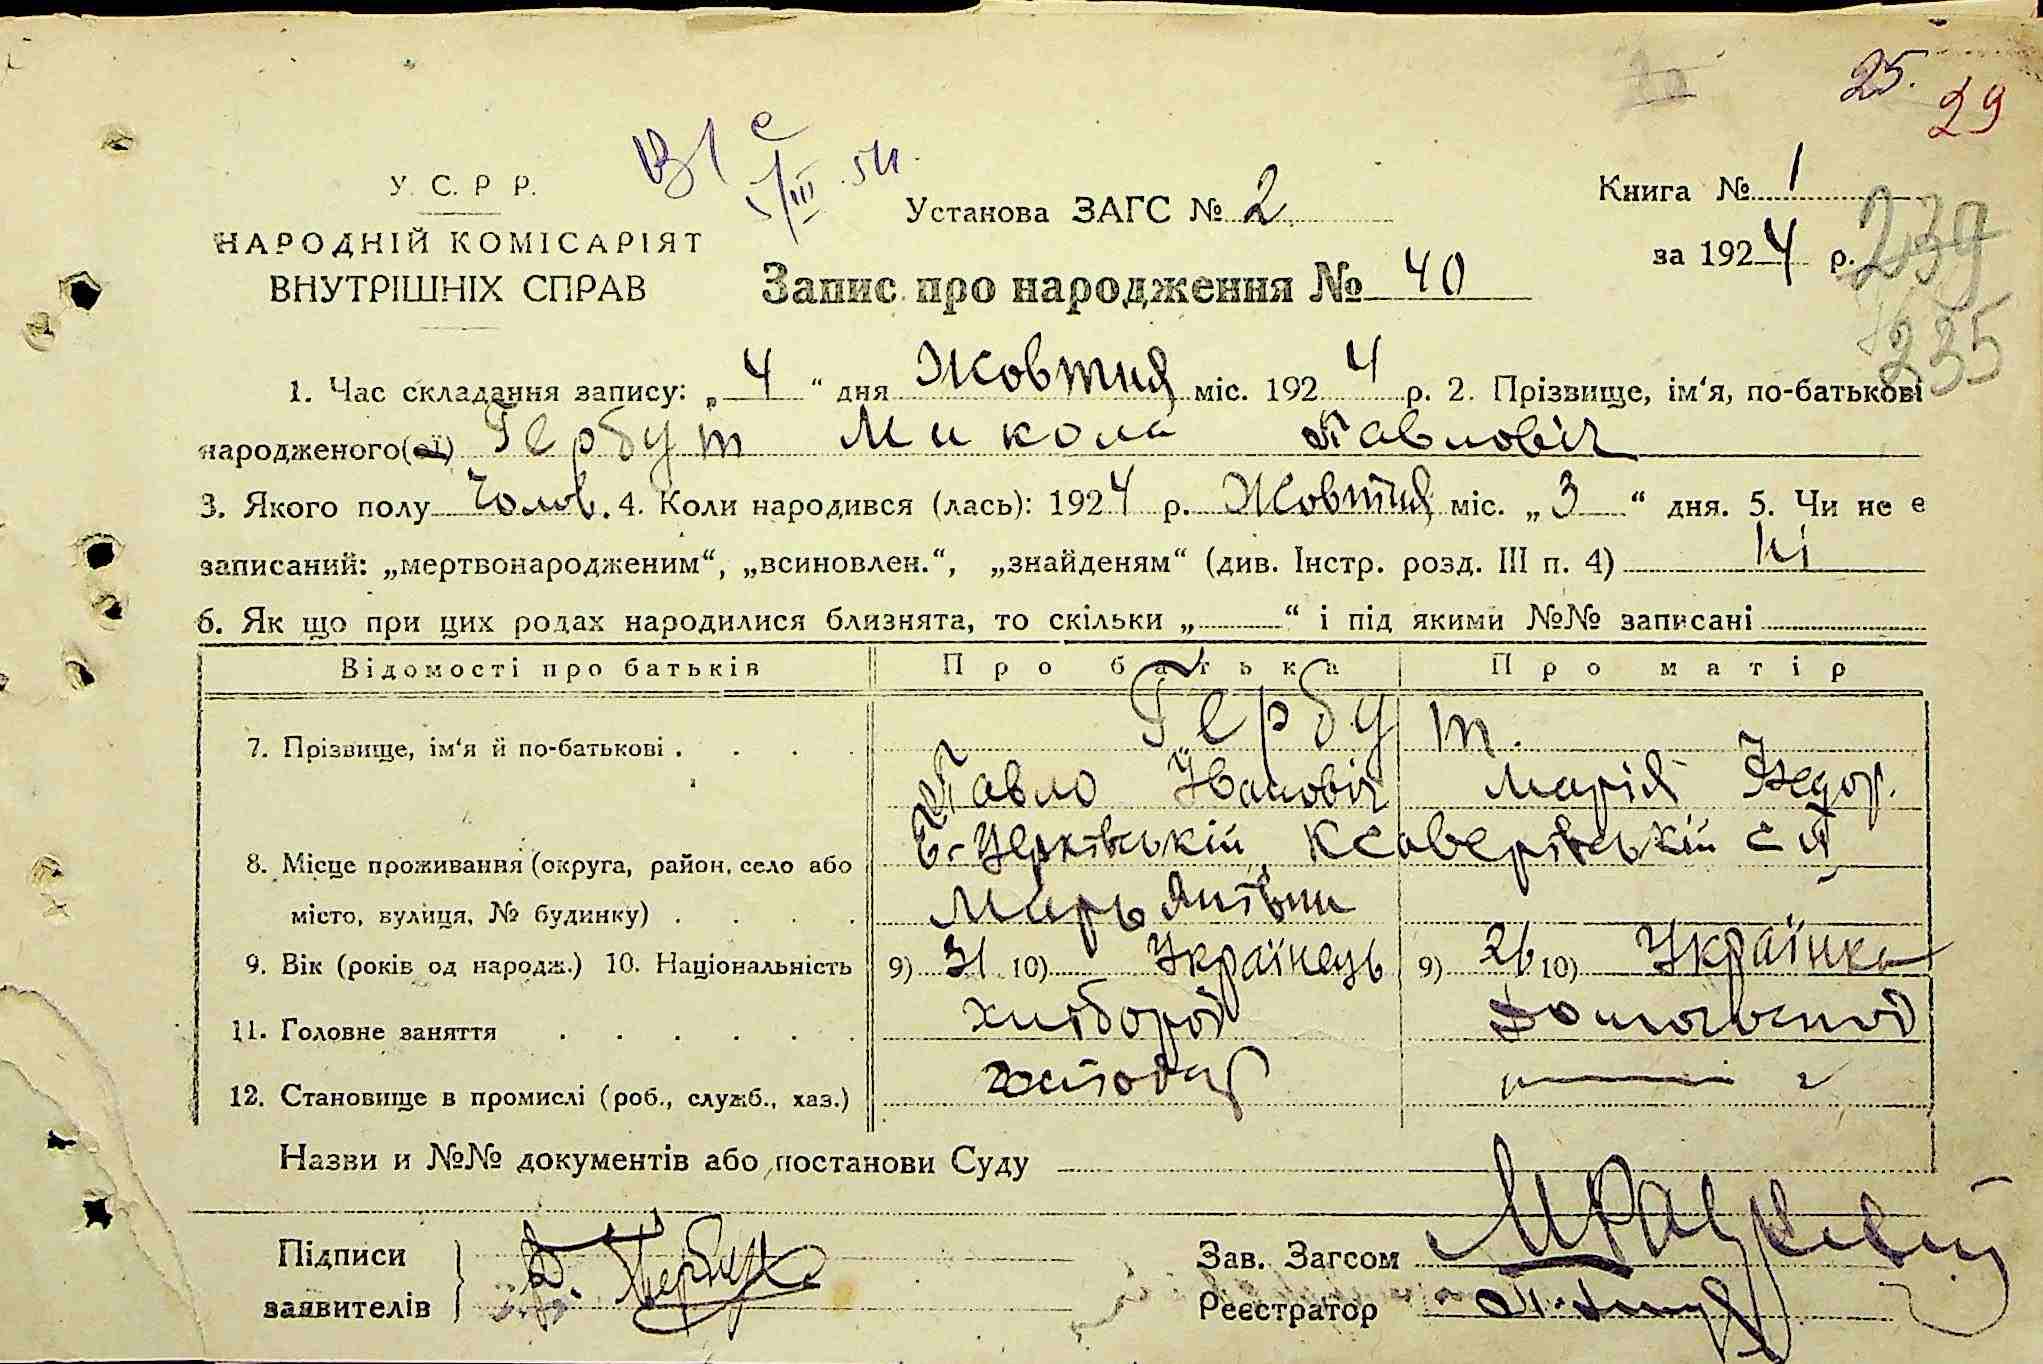 25.
29
У. С. Р Р.
Установа ЗАГС № 2
Книга № 1
НАРОДНІЙ КОМІСАРІЯТ
за 1924 р.
239
ВНУТРІШНІХ СПРАВ
Запис про народження № 40
235
1. Час складання запису: „ 4 “ дня Жовтня міс. 1924 р. 2. Прізвище, ім‘я, по-батькові
народженого(ої) Гербут Микола Павловіч
3. Якого полу Чолов. 4. Коли народився (лась): 1924 р. Жовтня міс. „ 3 “ дня. 5. Чи не є
записаний: „мертвонародженим“, „всиновлен.“, „знайденям“ (див. Інстр. розд. III п. 4) ні
6. Як що при цих родах народилися близнята, то скільки „ “ і під якими №№ записані
Відомості про батьків Про батька Про матір
Гербут.
7. Прізвище, ім‘я й по-батькові
Павло Іванович Марія Федор.
Б-Церківській, Ксаверівській
8. Місце проживання (округа, район, село або
місто, вулиця, № будинку) Марьянівки
9. Вік (років од народж.) 10. Національність 9) 31 10) Українець 9) 26 10) Українка
11. Головне заняття хлібороб
12. Становище в промислі (роб., служб., хаз.) господар
Назви и №№ документів або постанови Суду
Підписи
заявителів
П. Гербут
Зав. Загсом
Реєстратор